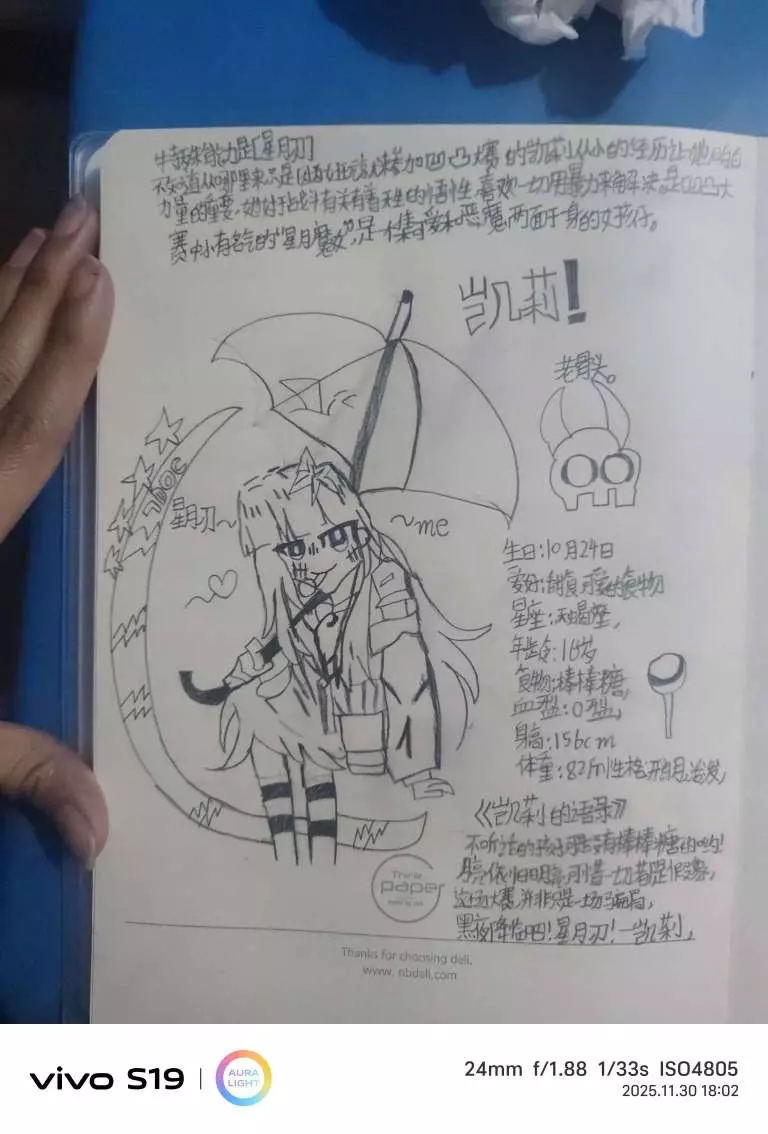 特殊能力是[星月刃]
不知道从哪里来只是因为比玩来参加凹凸大赛的凯莉从小的经历让她明白
力量的重要,她对于战斗有关有着天生的悟性,喜欢一切用暴力来解决,是凹凸大
赛中小有名气的"星月魔女",是个集可爱和恶魔两面于身的女孩子。
凯莉!
老骨头。
星月刃~
~me
生日:10月24日
爱好:甜食,可爱的食物
星座:天蝎座,
年龄:16岁
食物:棒棒糖,
血型:O型,
身高:156cm
体重: 性格:开朗,活泼,
《凯莉的语录》
不听话的孩子可是没有棒棒糖的哟!
依旧明亮,可惜一切都是假象,
这场大赛,并非只是一场骗局,
黑夜降临吧!星月刃!—凯莉,
Think
paper
Thanks for choosing deli.
www. nbdeli.com
vivo S19
AURA
LIGHT
24mm f/1.88 1/33s ISO4805
2025.11.30 18:02